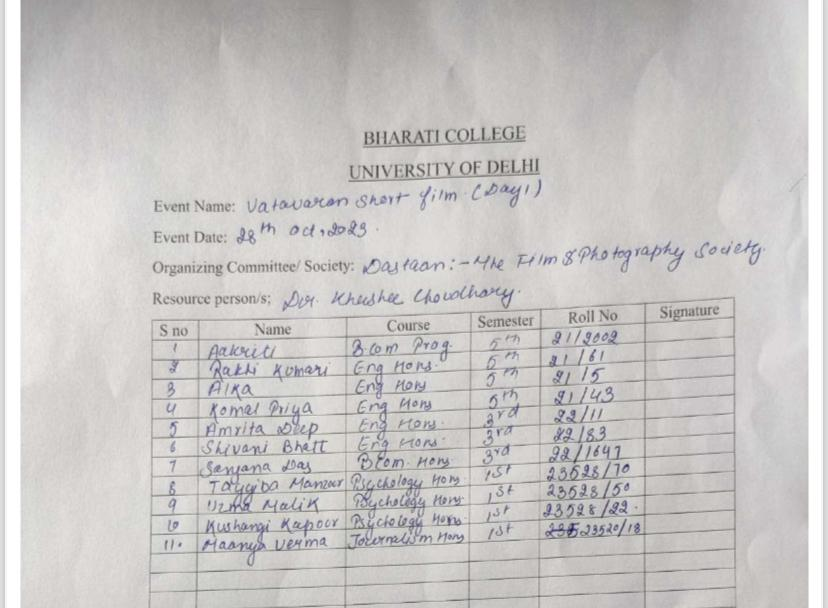 BHARATI COLLEGE
UNIVERSITY OF DELHI
Event Name: Vatavaran Short film (Day 1)
Event Date: 28th Oct, 2023.
Organizing Committee/ Society: Dastaan :- The Film & Photography Society.
Resource person/s; Dir. Khushee Choudhary.
S no Name Course Semester Roll No Signature
1 Aakriti B.com Prog. 5th 21/2002
2 Rakhi Kumari Eng Hons. 5th 21/61
3 Alka Eng Hons 5th 21/5
4 Komal Priya Eng Hons 5th 21/43
5 Amrita Deep Eng Hons. 3rd 22/11
6 Shivani Bhatt Eng Hons. 3rd 22/83
7 Sanjana Das B.Com. Hons 3rd 22/1647
8 Tayyiba Manzoor Psychology Hons 1st 23528/70
9 Uzma Malik Psychology Hons 1st 23528/50
10 Kushangi Kapoor Psychology Hons 1st 23528/22.
11. Maanya Verma Journalism Hons 1st 23520/18